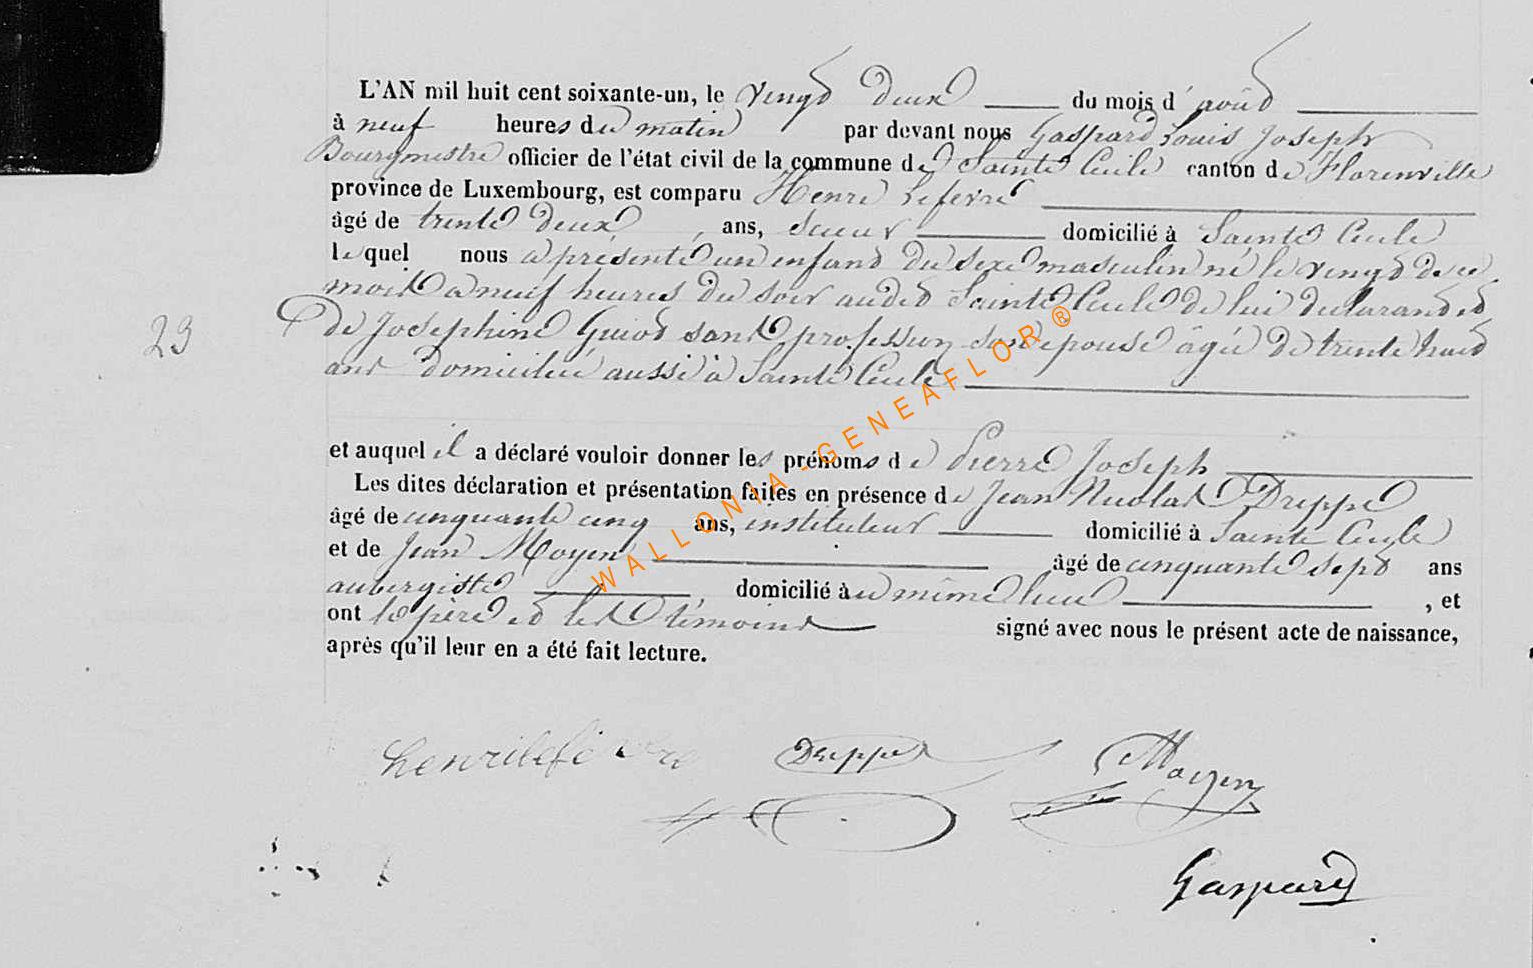 L'AN mil huit cent soixante-un, le vingt deux du mois d'août
à neuf heures du matin par devant nous Gaspard Louis Joseph
Bourgmestre officier de l'état civil de la commune de Sainte Cécile canton de Florenville
province de Luxembourg, est comparu Henri Lefevre
âgé de trente deux, ans, domicilié à Sainte Cécile
lequel nous a présenté un enfant du sexe masculin né le vingt de ce
mois à neuf heures du soir audit Sainte Cécile de lui déclarant et
23
de Josephine Guiot sans profession son épouse âgée de trente huit
ans domiciliée aussi à Sainte Cécile
et auquel il a déclaré vouloir donner les prénoms de Pierre Joseph
Les dites déclaration et présentation faites en présence de Jean Nicolas Dreppe
âgé de cinquante cinq ans, instituteur domicilié à Sainte Cécile
et de Jean Moyen âgé de cinquante sept ans
aubergiste, domicilié au même lieu, et
ont le père et les témoins signé avec nous le présent acte de naissance,
après qu'il leur en a été fait lecture.
henri lefevre Dreppe Moyen
Gaspard
WALLONIA-GENEAFLOR®